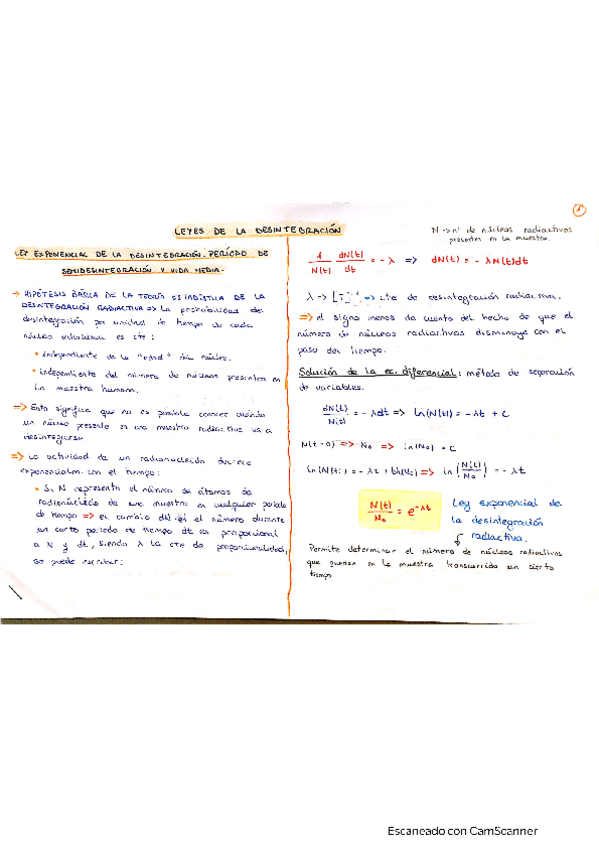 1
LEYES DE LA DESINTEGRACIÓN
LEY EXPONENCIAL DE LA DESINTEGRACIÓN. PERÍODO DE
SEMIDESINTEGRACIÓN Y VIDA MEDIA.
→ HIPÓTESIS BÁSICA DE LA TEORÍA ESTADÍSTICA DE LA
DESINTEGRACIÓN RADIACTIVA => La probabilidad de
desintegración por unidad de tiempo de cada
núcleo es cte:
• independiente de la "edad" del núcleo.
• independiente del número de núcleos presentes en
la muestra
=> Esto significa que no es posible conocer cuándo
un núcleo presente en una muestra radiactiva va a
desintegrarse
=> La actividad de un radionucleido decrece
exponencialm. con el tiempo:
• Si N representa el número de átomos de
radionúcleido de una muestra en cualquier periodo
de tiempo => el cambio dN en el número durante
un corto periodo de tiempo dt es proporcional
a N y dt, siendo λ la cte de proporcionalidad,
se puede escribir:
N => nº de núcleos radiactivos
presentes en la muestra.
1/N(t) dN(t)/dt = - λ => dN(t) = - λN(t)dt
λ => [T]⁻¹ => cte de desintegración radiactiva.
=> el signo menos da cuenta del hecho de que el
número de núcleos radiactivos disminuye con el
paso del tiempo.
Solución de la ec. diferencial: método de separación
de variables.
dN(t)/N(t) = - λdt => ln(N(t)) = - λt + C
N(t=0) => N₀ => ln(N₀) = C
ln(N(t)) = - λt + ln(N₀) => ln(N(t)/N₀) = - λt
N(t)/N₀ = e^-λt Ley exponencial de
la desintegración
radiactiva.
Permite determinar el número de núcleos radiactivos
que quedan en la muestra transcurrido un cierto
tiempo
Escaneado con CamScanner